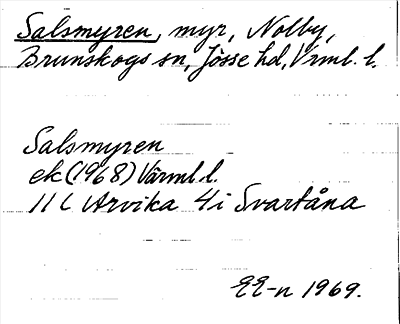 Salsmyren, myr, Nolby,
Brunskogs sn, Jösse hd, Vrml. l.
Salsmyren
ek (1968) Värml l.
11 C Arvika 4 i Svartåna
EE-n 1969.